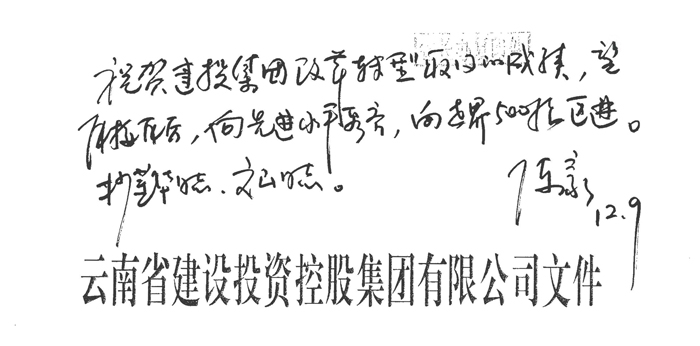 祝贺建投集团改革转型取得的成绩，望
再接再厉，向先进水平看齐，向世界500强迈进。
抄董华同志、文山同志。
陈豪
12.9
云南省建设投资控股集团有限公司文件